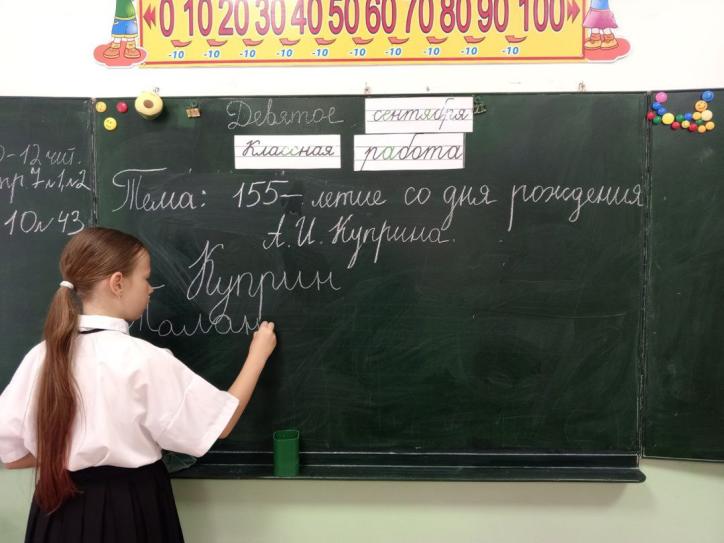 0 10 20 30 40 50 60 70 80 90 100
-10 -10 -10 -10 -10 -10 -10 -10 -10
Девятое сентября
Классная работа
Тема: 155-летие со дня рождения
А.И. Куприна.
- Куприн
Талан
-12 чит.
7 №1, №2
10 № 43